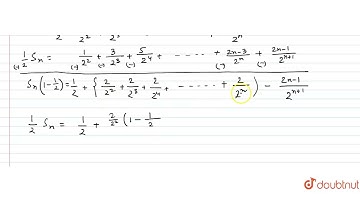 2 2² 2³ 2⁴ 2ⁿ
1/2 Sₙ = 1/2² + 3/2³ + 5/2⁴ + - - - - - + 2n-3/2ⁿ + 2n-1/2ⁿ⁺¹
(-) (-) (-) (-) (-) (-)
Sₙ(1-1/2) = 1/2 + { 2/2² + 2/2³ + 2/2⁴ + - - - - - + 2/2ⁿ } - 2n-1/2ⁿ⁺¹
1/2 Sₙ = 1/2 + 2/2² (1 - 1/2
doubtnut